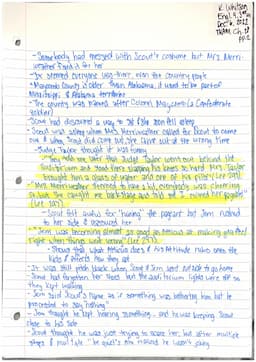 K. Whitson
Engl. 9, 2nd
Dec. 6, 2022
TKAM, Ch. 28
pp. 2
-Somebody had messed with Scout's costume but Mrs. Merri-
weather fixed it for her
-It seemed everyone was there, even the country people
-Maycomb County is older than Alabama, it used to be part of
Mississippi & Alabama territories
-The county was named after Colonel Maycomb (a Confederate
Scout had discovered a way to sit & she soon fell asleep
-Scout was asleep when Mrs. Merriweather called for Scout to come
out & when Scout did come out, she came out at the wrong time
-Judge Taylor thought it was funny
"They told me later that Judge Taylor went out behind the
auditorium and stood there slapping his knees so hard Mrs. Taylor
brought him a glass of water and one of his pills"
"Mrs. Merriweather seemed to have a hit, everybody was cheering
so but she caught me backstage and told me I ruined her pageant"
-Scout felt awful for "ruining" the pageant but Jem rushed
to her side &
"Jem was becoming almost as good as Atticus at making you feel
right when things went wrong"
-Shows that what Atticus does & his attitude rubs onto the
kids & affects how they act
-It was still pitch black when Scout & Jem went outside to go home
-Scout had forgotten her shoes but the auditorium lights were off so
they kept walking
-Jem said Scout's name as if something was bothering him but he
proceeded to say nothing
-Jem thought he kept hearing something and he was keeping Scout
close to his side
-Scout thought he was just trying to scare her, but after multiple
stops & multiple "be quiet"s she realized he wasn't joking